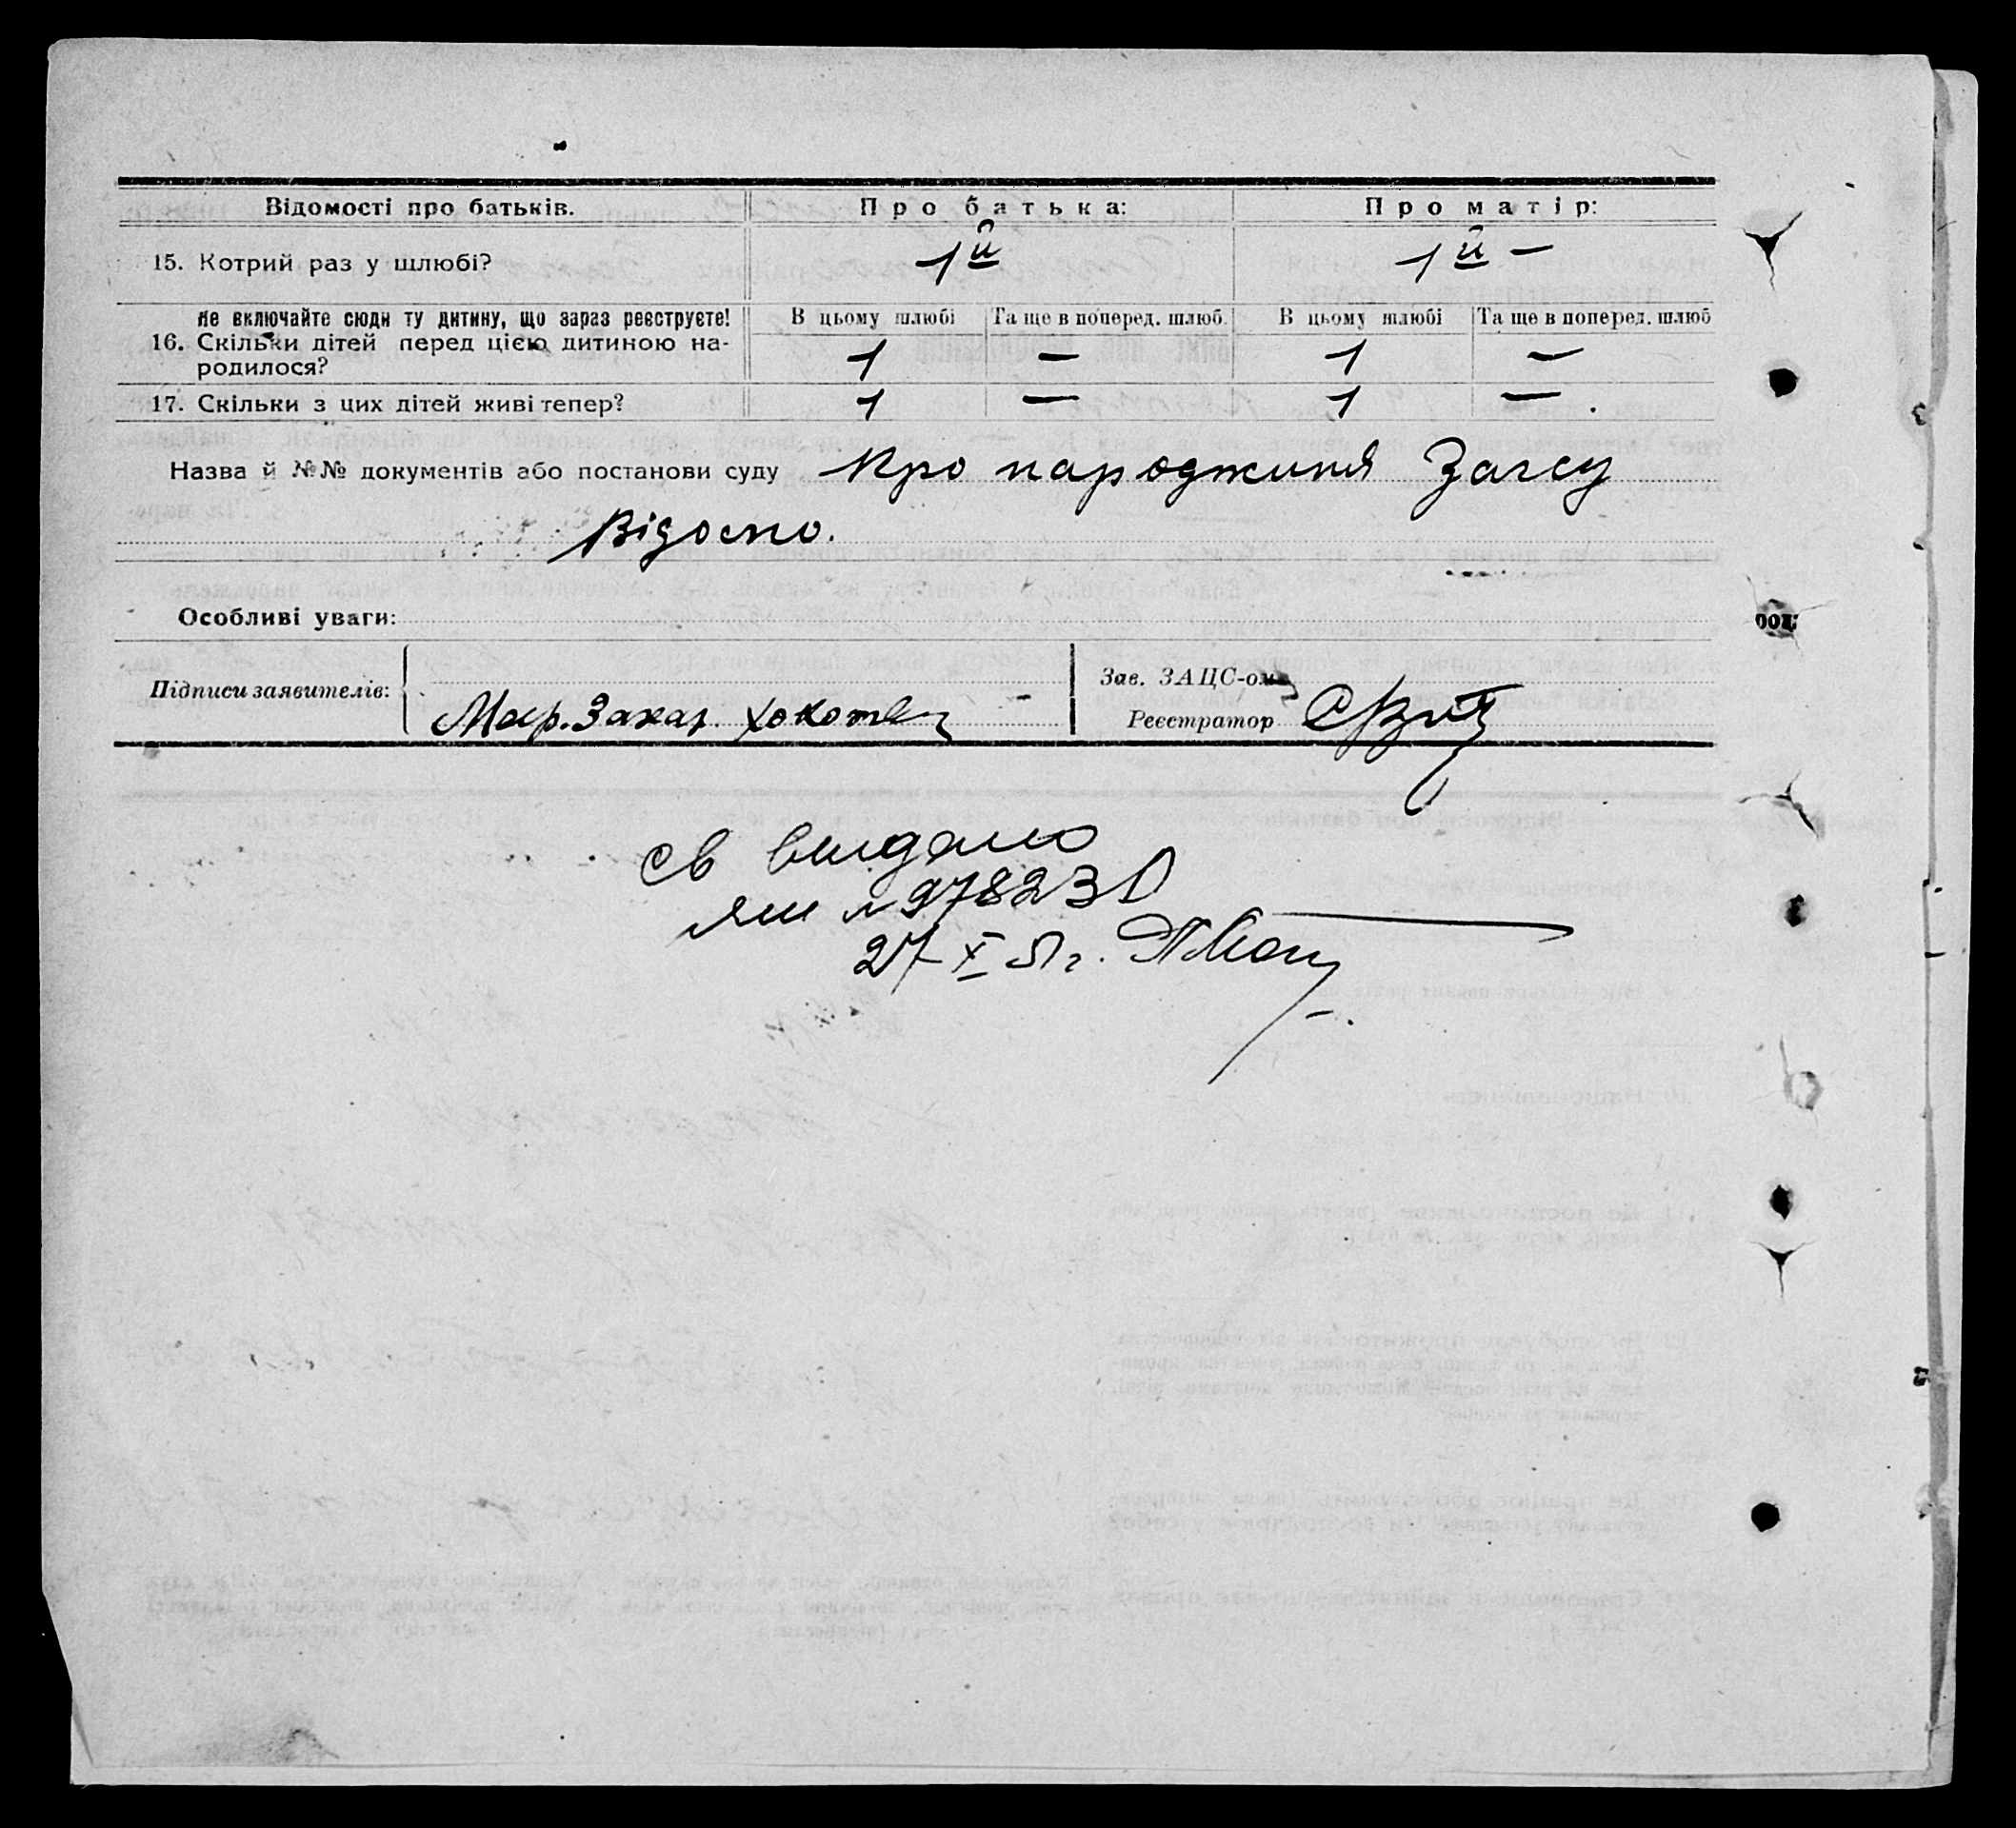 Відомості про батьків. Про батька: Про матір:
15. Котрий раз у шлюбі? 1й 1й —
Не включайте сюди ту дитину, що зараз реєструєте! В цьому шлюбі Та ще в поперед. шлюб. В цьому шлюбі Та ще в поперед. шлюб
16. Скільки дітей перед цією дитиною на-
родилося? 1 — 1 —
17. Скільки з цих дітей живі тепер? 1 — 1 — .
Назва й №№ документів або постанови суду Про народження Загсу
Відомо.
Особливі уваги:
Підписи заявителів: Зав. ЗАЦС-ом
Реєстратор
Св видано
ЯШ № 978230
27 X 51 г.